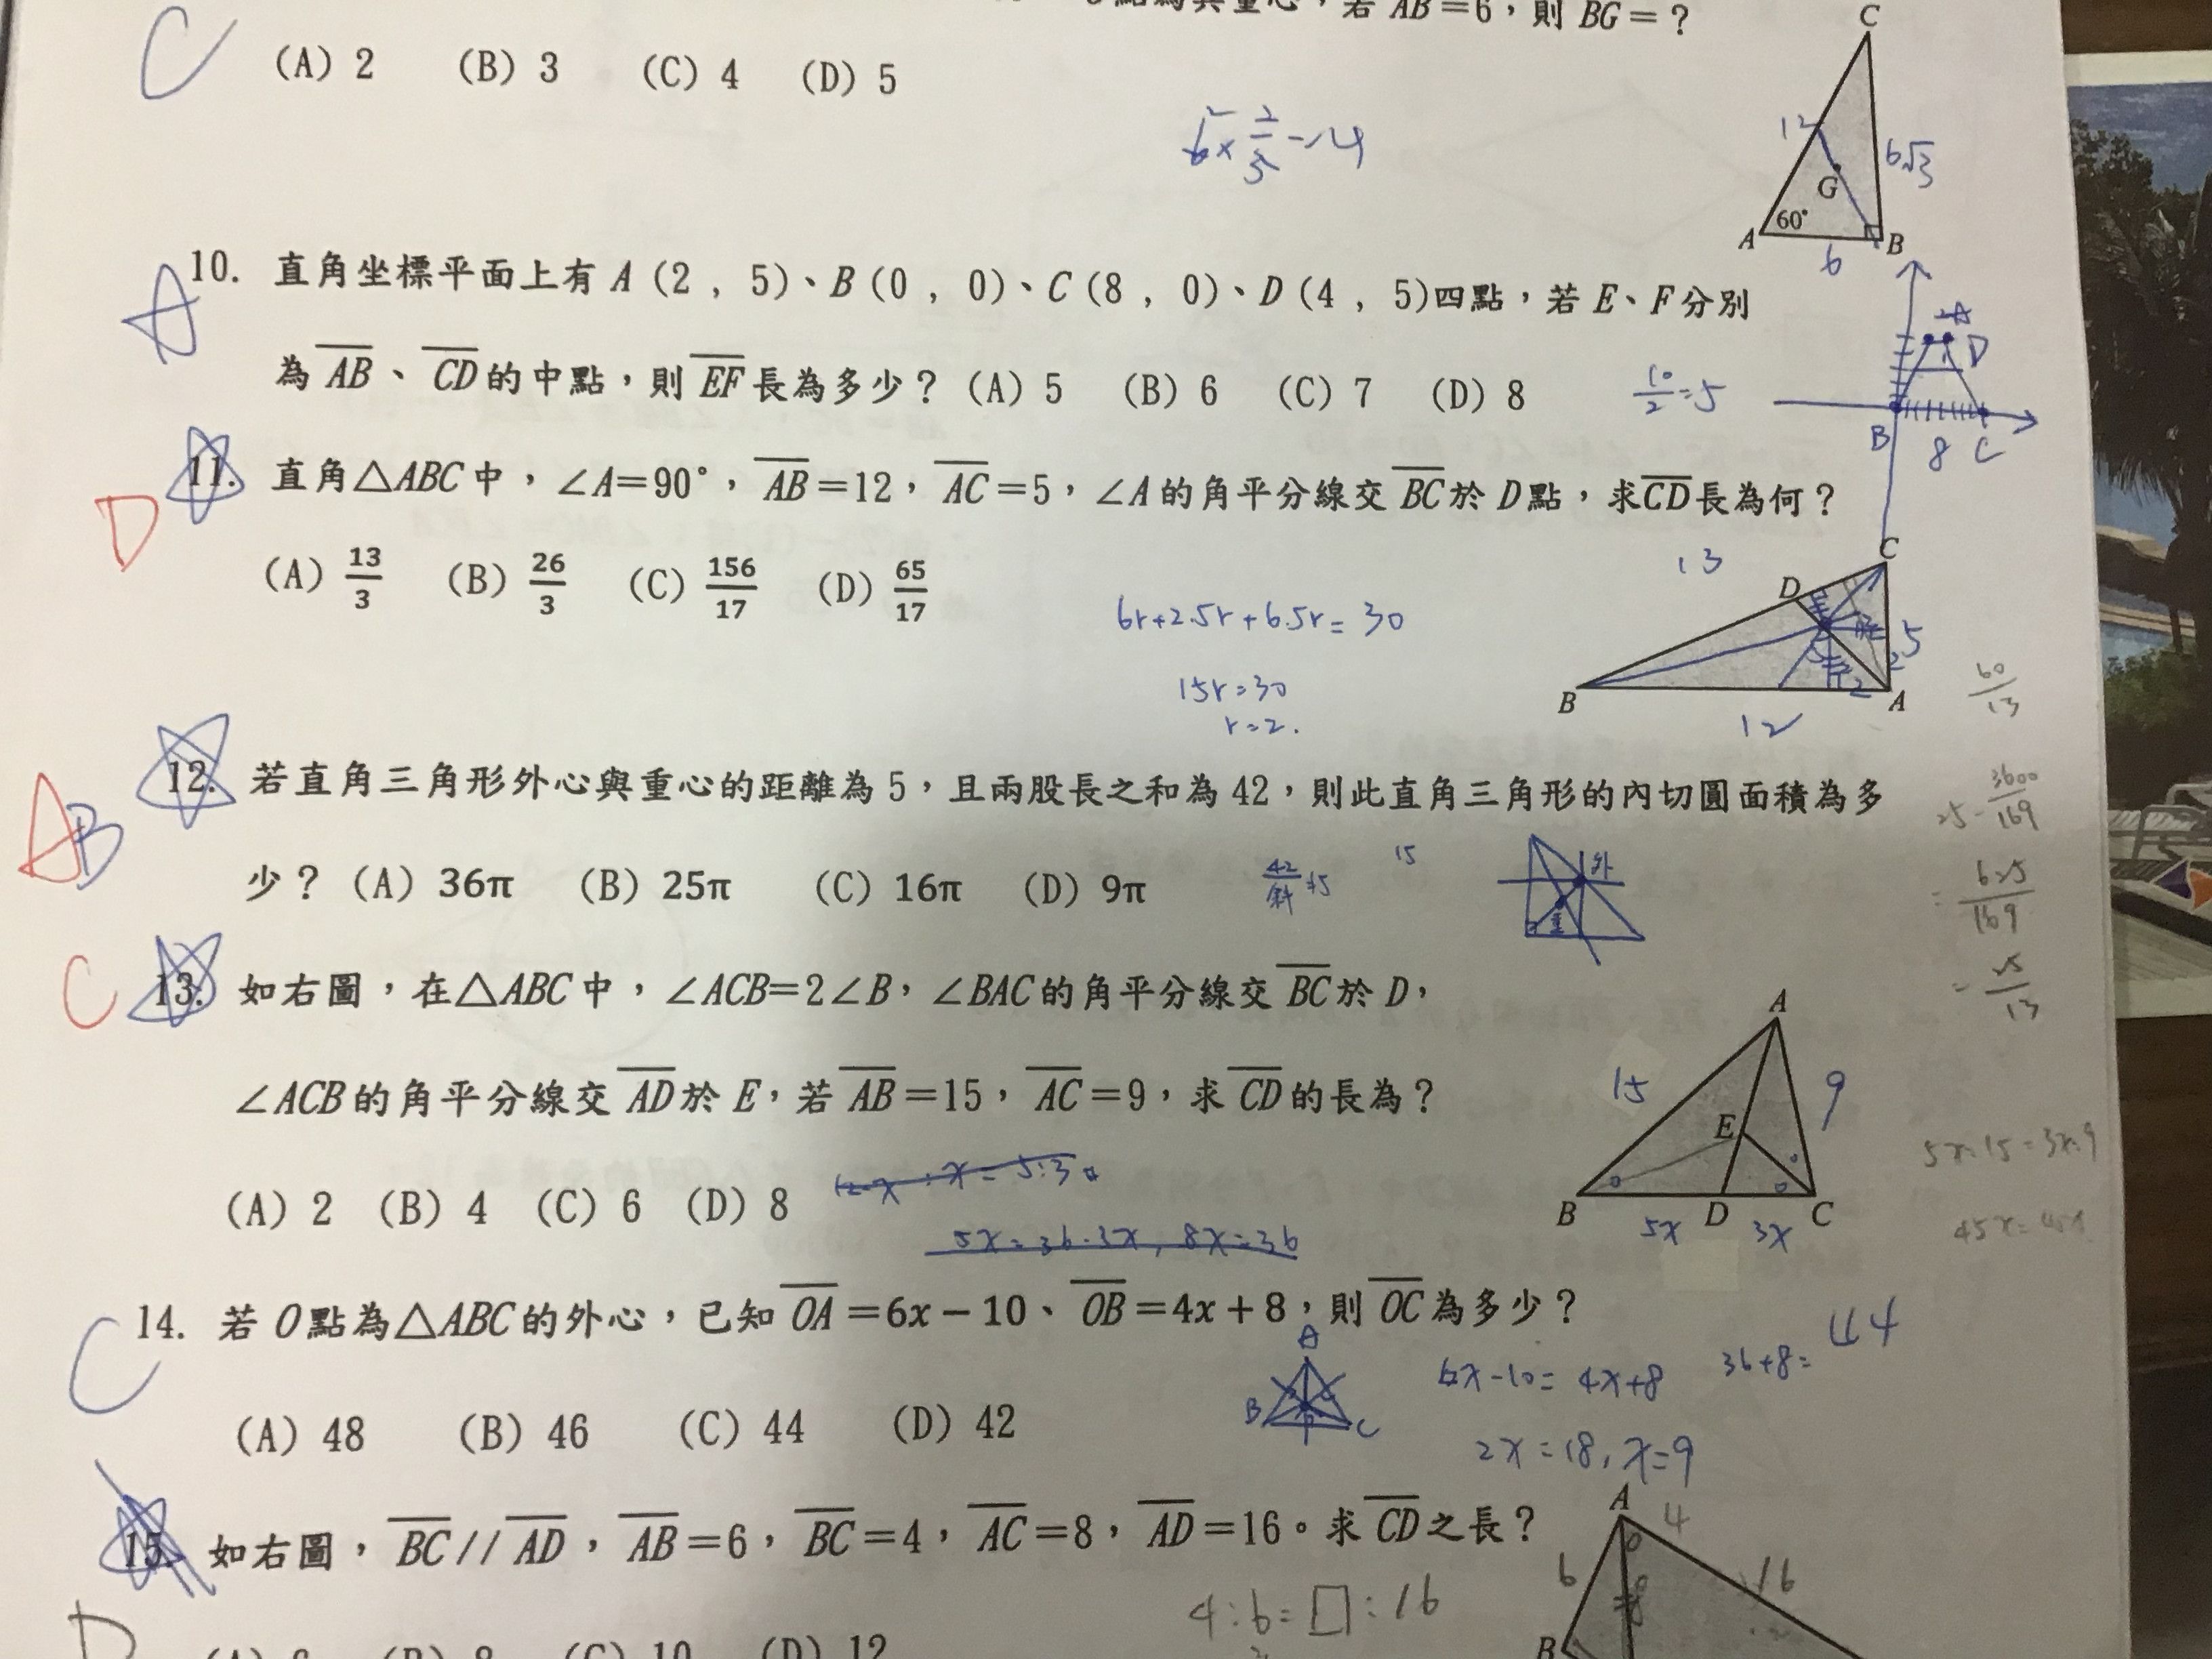 點為其重心，若 AB＝6，則 BG＝？
C (A) 2 (B) 3 (C) 4 (D) 5
6×2/3=4
C
12
6√3
G
60°
A
B
6
A 10. 直角坐標平面上有 A (2 , 5)、B (0 , 0)、C (8 , 0)、D (4 , 5)四點，若 E、F 分別
為 AB、CD 的中點，則 EF 長為多少？ (A) 5 (B) 6 (C) 7 (D) 8
10/2=5
A
D
B
8
C
11. 直角△ABC 中，∠A＝90°，AB＝12，AC＝5，∠A 的角平分線交 BC 於 D 點，求CD長為何？
D (A) 13/3 (B) 26/3 (C) 156/17 (D) 65/17
6r+2.5r+6.5r=30
15r=30
r=2.
13
C
D
5
2
2
B
A
12
60/13
12. 若直角三角形外心與重心的距離為 5，且兩股長之和為 42，則此直角三角形的內切圓面積為多
A B
少？ (A) 36π (B) 25π (C) 16π (D) 9π
42/斜
15
外
重
25-3600/169
=625/169
=25/13
C 13. 如右圖，在△ABC 中，∠ACB＝2∠B，∠BAC 的角平分線交 BC 於 D，
∠ACB 的角平分線交 AD 於 E，若 AB＝15，AC＝9，求 CD 的長為？
(A) 2 (B) 4 (C) 6 (D) 8
12-x:x=5:3
5x=36-3x, 8x=36
A
15
9
E
B
D
C
5x
3x
5x·15=3x·9
14. 若 O 點為△ABC 的外心，已知 OA＝6x－10、OB＝4x＋8，則 OC 為多少？
C (A) 48 (B) 46 (C) 44 (D) 42
A
B
C
6x-10=4x+8
36+8=44
2x=18, x=9
15. 如右圖，BC // AD，AB＝6，BC＝4，AC＝8，AD＝16。求 CD 之長？
D (A) 6 (B) 8 (C) 10 (D) 12
4:6=□:16
A
4
6
16
B